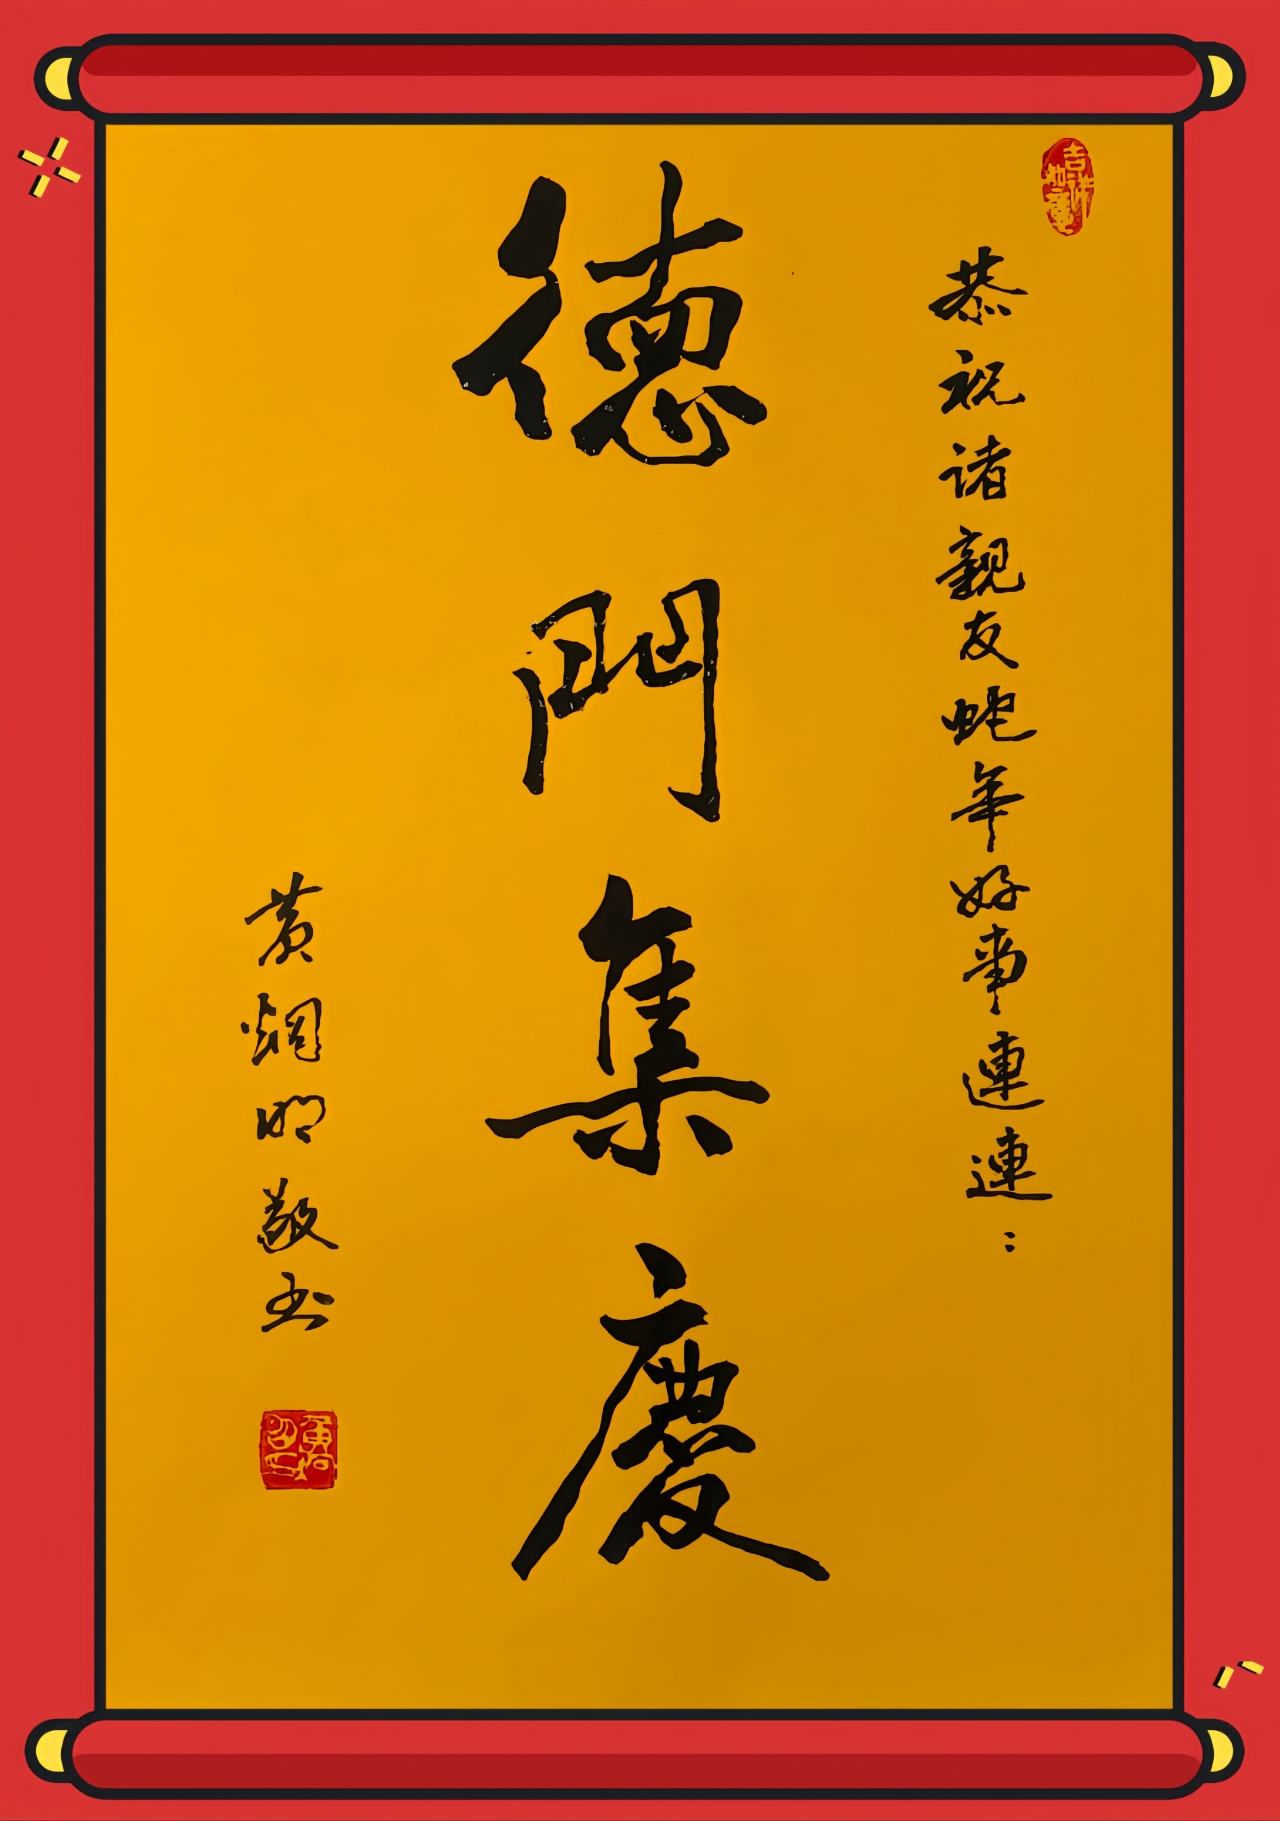 吉祥如意
恭祝诸親友蛇年好事連連:
德門集慶
黄炯明敬书